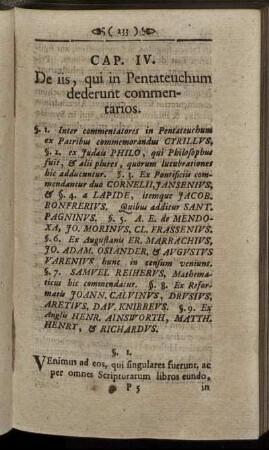 ( 233 )
CAP. IV.
De iis, qui in Pentateuchum
dederunt commen-
tarios.
§. 1. Inter commentatores in Pentateuchum
ex Patribus commemorandus CYRILLVS,
§. 2. ex Judæis PHILO, qui Philosophus
fuit, & alii plures, quorum lucubrationes
hic adducuntur. §. 3. Ex Pontificiis com-
mendantur duo CORNELII, JANSENIVS,
& §. 4. a LAPIDE, itemque JACOB.
BONFRERIVS. Quibus additur SANT.
PAGNINVS. §. 5. A. E. de MENDO-
XA, JO. MORINVS, CL. FRASSENIVS.
§. 6. Ex Augustanis ER. MARRACHIVS,
JO. ADAM. OSIANDER, & AVGVSTVS
VARENIVS hunc in censum veniunt.
§. 7. SAMVEL REIHERVS, Mathema-
ticus hic commendatur. §. 8. Ex Refor-
matis JOANN. CALVINVS, DRVSIVS,
ARETIVS, DAV. KNIBBEVS. §. 9. Ex
Anglis HENR. AINSWORTH, MATTH.
HENRY, & RICHARDVS.
§. 1.
VEnimus ad eos, qui singulares fuerunt, ac
per omnes Scripturarum libros eundo,
P 5 in